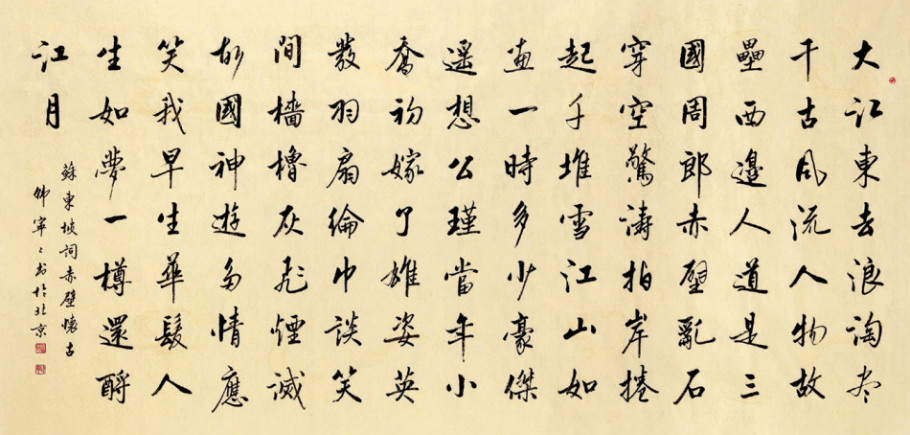 大江東去浪淘尽
千古风流人物故
壘西邊人道是三
國周郎赤壁亂石
穿空驚濤拍岸捲
起千堆雪江山如
畫一時多少豪傑
遥想公瑾當年小
喬初嫁了雄姿英
發羽扇綸巾談笑
間檣櫓灰飛煙滅
故國神遊多情應
笑我早生華髮人
生如夢一樽還酹
江月
蘇東坡詞赤壁懷古
書於北京